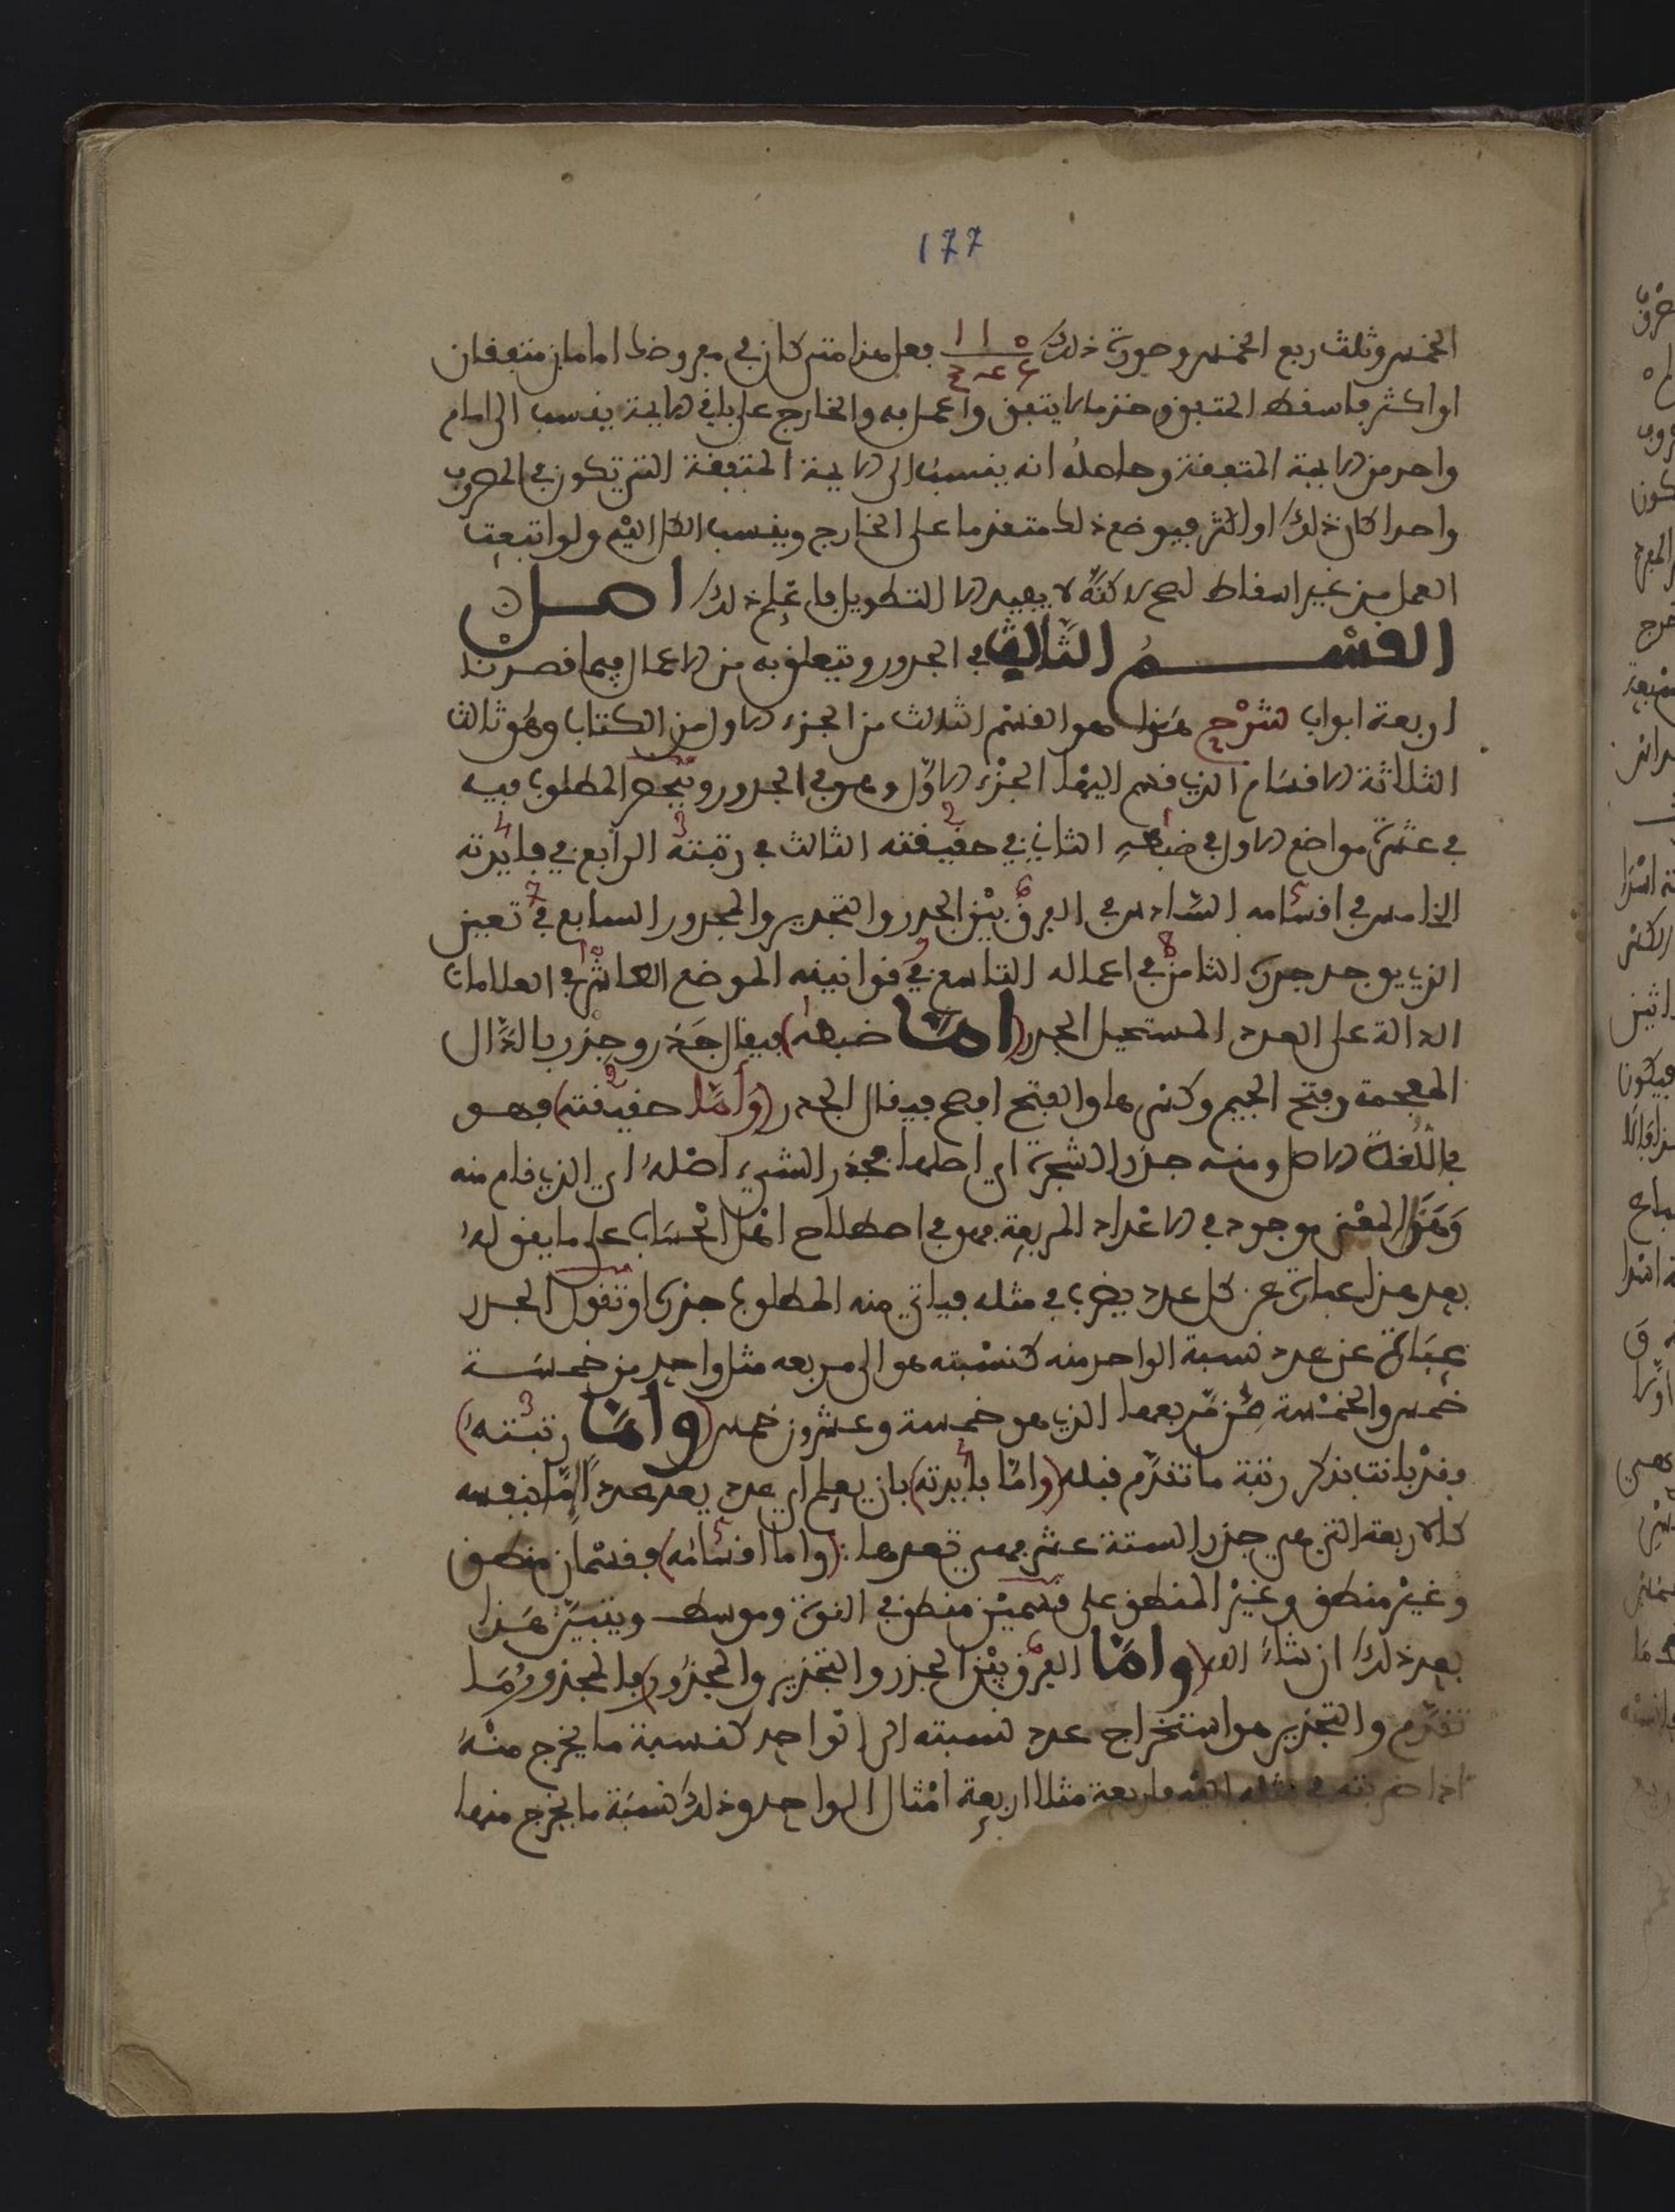 177
الخمس وثلث ربع الخمس وصورة ذلك فعلى هذا متى كان في مفروضك امامان متفقان
او اكثر فاسقط المتفق وخذ ما لا يتفق واعمل به والخارج على باقي الايمة ينسب الى امام
واحد من الايمة المتفقة وحاصله انه ينسب الى الايمة المتفقة التي تكون في المضروب
واحدا كان ذلك او اكثر فيوضع ذلك متقدما على الخارج وينسب الكل اليه ولو اتبعت
العمل من غير اسقاط لصح لاكنه لا يفيد الا التطويل فاعلم ذلك اصل
القسم الثالث في الجدور ويتعلق به من الاعمال فيما قصدنا
اربعة ابواب شرح هذا هو القسم الثالث من الجزء الاول من الكتاب وهو ثالث
الثلاثة الاقسام الذي قسم اليها الجزء الاول وهو في الجدور وينحصر المطلوب فيه
في عشرة مواضع الاول في ضبطه الثاني في حقيقته الثالث في رتبته الرابع في فايدته
الخامس في اقسامه السادس في الفرق بين الجدر والتجدير والمجدور السابع في تعيين
الذي يوجد جدره الثامن في اعماله التاسع في قوانينه الموضع العاشر في العلامات
الدالة على العدد المستحيل الجدر (اما ضبطه) فيقال جذر وجذر بالذال
المعجمة وفتح الجيم وكسرها والفتح افصح فيقال الجدر (واما حقيقته) فهو
في اللغة الاصل ومنه جذر الشجرة اي اصلها فجذر الشيء اصله اي الذي قام منه
وهذا المعنى موجود في الاعداد المربعة وهو في اصطلاح اهل الحساب على ما يقوله
بعد هذا عبارة عن كل عدد يضرب في مثله فياتي منه المطلوب جذره او تقول الجدر
عبارة عن عدد نسبة الواحد منه كنسبته هو الى مربعه مثل واحد من خمسة
خمس والخمسة من مربعها الذي هو خمسة وعشرون خمس (واما رتبته)
وقد بانت بذكر رتبة ما تقدم قبله (واما فايدته) بان يعلم اي عدد يعد عددا ما بنفسه
كالاربعة التي هي جذر الستة عشر فهي تعدها (واما اقسامه) فقسمان منطق
وغير منطق وغير المنطق على قسمين منطق في القوة وموسط ويتبين هذا
بعد ذلك ان شاء الله (واما الفرق بين الجزر والتجذير والمجذور) فالمجذور ما
تقدم والتجذير هو استخراج عدد نسبته الى الواحد كنسبة ما يخرج منه
اذا ضربته في مثله اليه فاربعة مثلا اربعة امثال الواحد وذلك نسبة ما يخرج منها